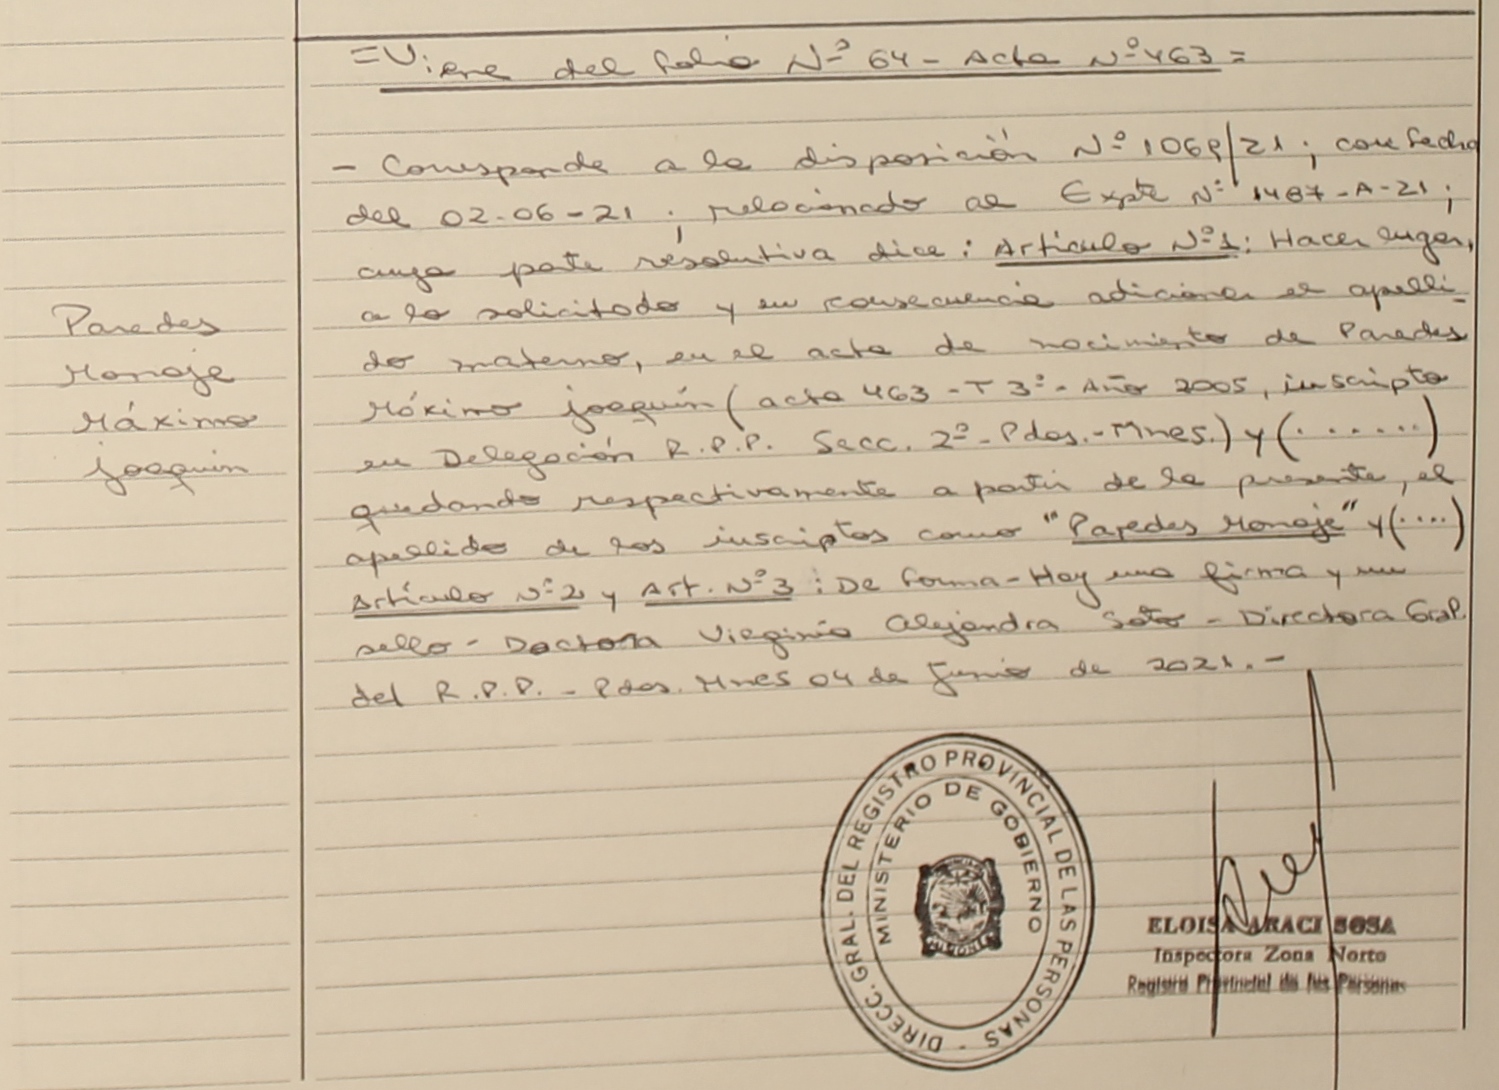 =Viene del folio Nº 64 - Acta Nº 463=
- Corresponde a la disposición Nº 1069/21; con fecha
del 02-06-21; relacionado al Expte Nº 1487-A-21;
cuya parte resolutiva dice: Artículo Nº1: Hacer lugar,
a lo solicitado y en consecuencia adicionar el apelli-
do materno, en el acta de nacimiento de Paredes
Máximo Joaquín (acta 463 - T 3º - Año 2005, inscripto
en Delegación R.P.P. Secc. 2º - Pdas. - Mnes.) y (......)
quedando respectivamente a partir de la presente, el
apellido de los inscriptos como "Paredes Monaje" y (....)
Artículo Nº2 y Art. Nº3: De forma - Hay una firma y un
sello - Doctora Virginia Alejandra Soto - Directora Gral.
del R.P.P. - Pdas. Mnes 04 de Junio de 2021.-
Paredes
Monaje
Máximo
Joaquín
DIRECC. GRAL. DEL REGISTRO PROVINCIAL DE LAS PERSONAS -
MINISTERIO DE GOBIERNO
MISIONES
ELOISA ARACI SOSA
Inspectora Zona Norte
Registro Provincial de las Personas